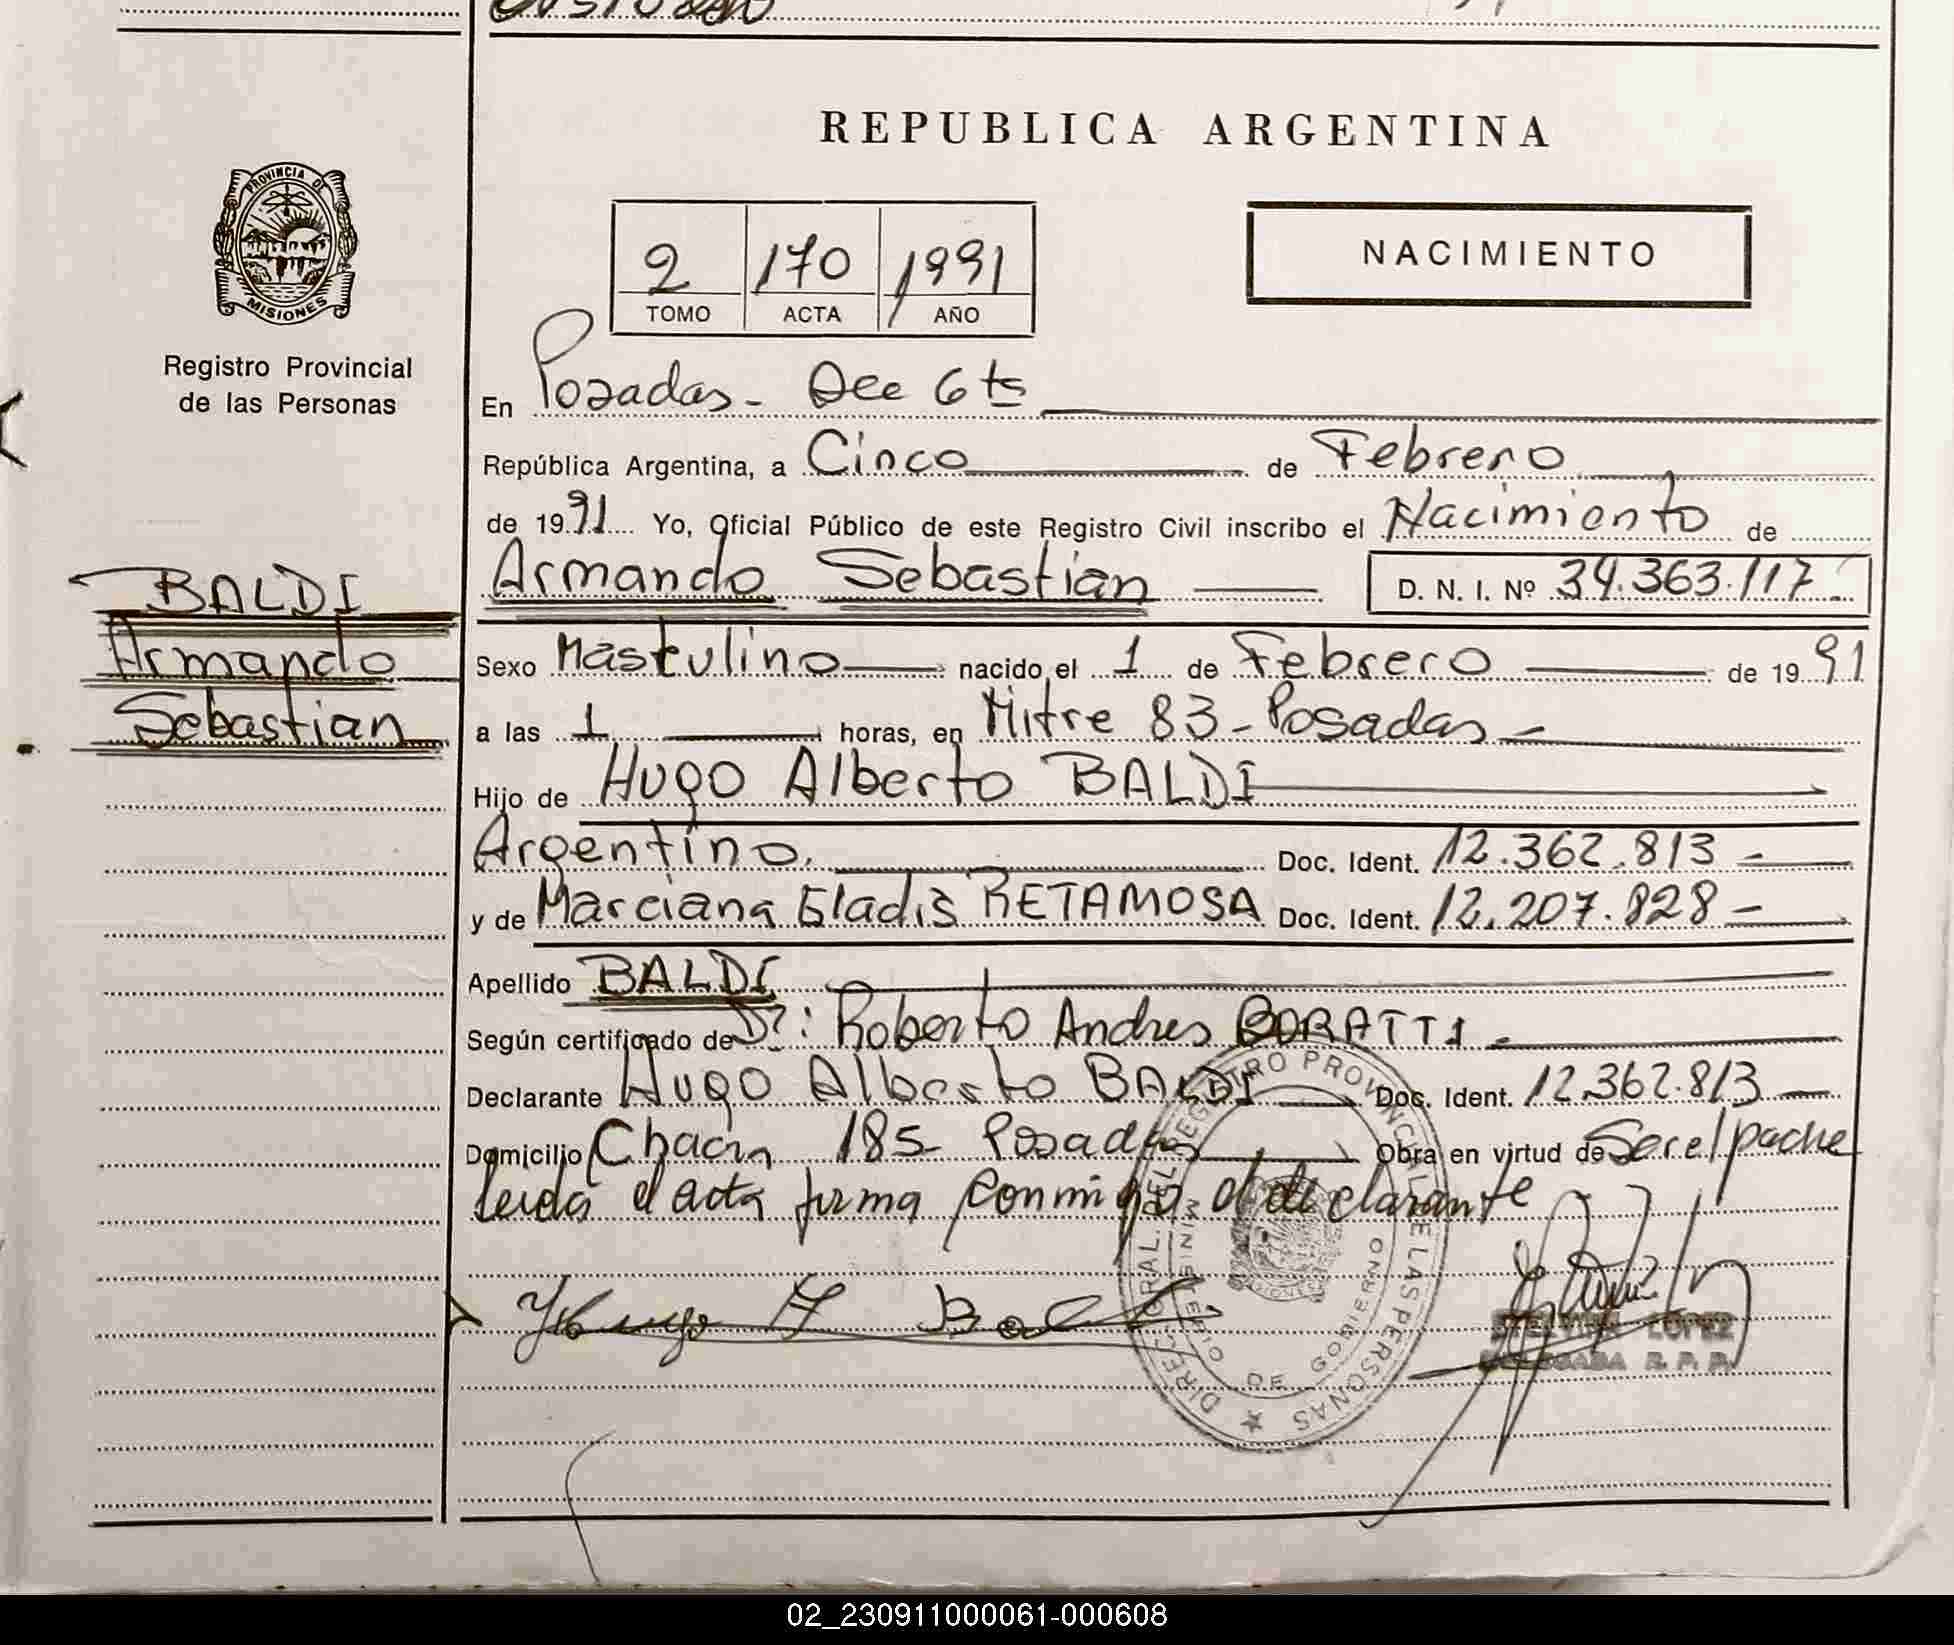 REPUBLICA ARGENTINA
PROVINCIA DE
MISIONES
Registro Provincial
de las Personas
2 170 1991
TOMO ACTA AÑO
NACIMIENTO
En Posadas - Dee 6ts
República Argentina, a Cinco de Febrero
de 1991 Yo, Oficial Público de este Registro Civil inscribo el Nacimiento de
Armando Sebastian D. N. I. Nº 34.363.117
BALDI
Armando
Sebastian
Sexo Masculino nacido el 1 de Febrero de 1991
a las 1 horas, en Mitre 83 - Posadas
Hijo de Hugo Alberto BALDI
Argentino. Doc. Ident. 12.362.813
y de Marciana Gladis RETAMOSA Doc. Ident. 12.207.828
Apellido BALDI
Según certificado de Dr: Roberto Andres BORATTI
Declarante Hugo Alberto BALDI Doc. Ident. 12.362.813
Domicilio Chacra 185 - Posadas Obra en virtud de Ser el padre
leida el acta firma conmigo el declarante
Hugo A Baldi
DIREC. GRAL. DEL REGISTRO PROVINCIAL DE LAS PERSONAS
MINISTERIO DE GOBIERNO
LOPEZ
R. P. P.
02_230911000061-000608